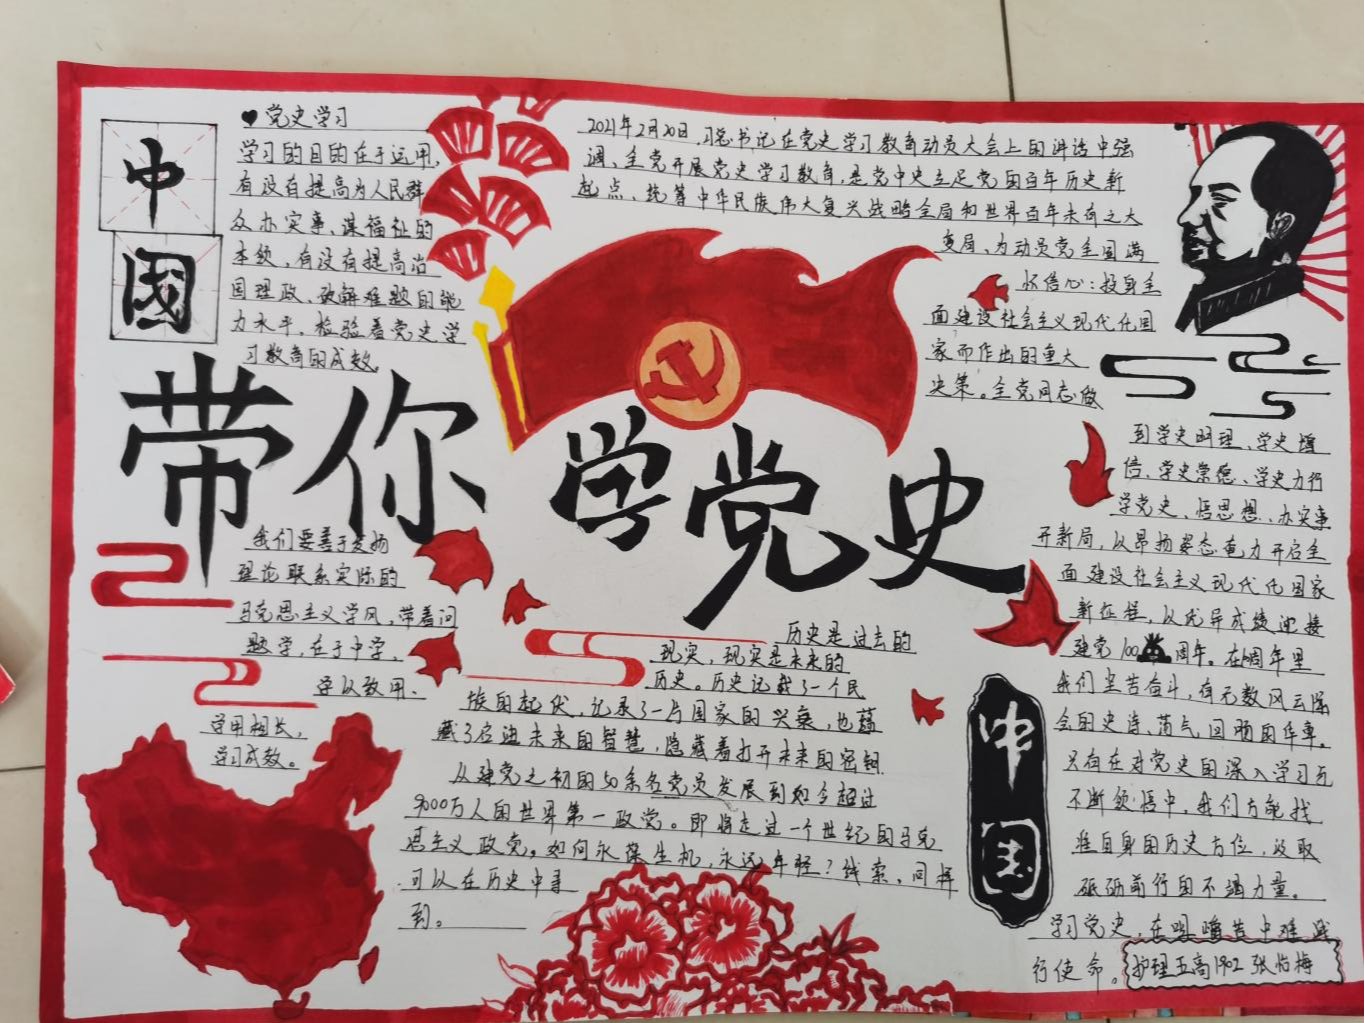 中
國
♥党史学习
学习的目的在于运用,
有没有提高为人民群
众办实事、谋福祉的
本领,有没有提高治
国理政、破解难题的能
力水平,检验着党史学
习教育的成效。
2021年2月20日,习总书记在党史学习教育动员大会上的讲话中强
调、全党开展党史学习教育,是党中央立足党的百年历史新
起点、统筹中华民族伟大复兴战略全局和世界百年未有之大
变局、为动员党全国满
怀信心:投身全
面建设社会主义现代化国
家而作出的重大
决策。全党同志做
到学史明理、学史增
信、学史崇德、学史力行
学党史、悟思想、办实事
开新局,以昂扬姿态奋力开启全
面建设社会主义现代化国家
新征程,以优异成绩迎接
建党100周年。在周年里
我们坚苦奋斗,有无数风云际
会的史诗、荡气回肠的华章。
只有在对党史的深入学习与
不断领悟中,我们方能找
准自身的历史方位,汲取
砥砺前行的不竭力量。
学习党史,在
行使命。
带你学党史
我们要善于发扬
理论联系实际的
马克思主义学风,带着问
题学,在于中学,
学以致用、
学用相长,
学习成效。
历史是过去的
现实,现实是未来的
历史。历史记载了一个民
族的起伏,记录了一与国家的兴衰,也蕴
藏了启迪未来的智慧,隐藏着打开未来的密钥.
从建党之初的50余名党员发展到如今超过
9000万人的世界第一政党。即将走过一个世纪的马克
思主义政党,如何永葆生机,永远年轻?线索,同样
可以在历史中寻
到。
中
国
护理五高1902 张怡梅